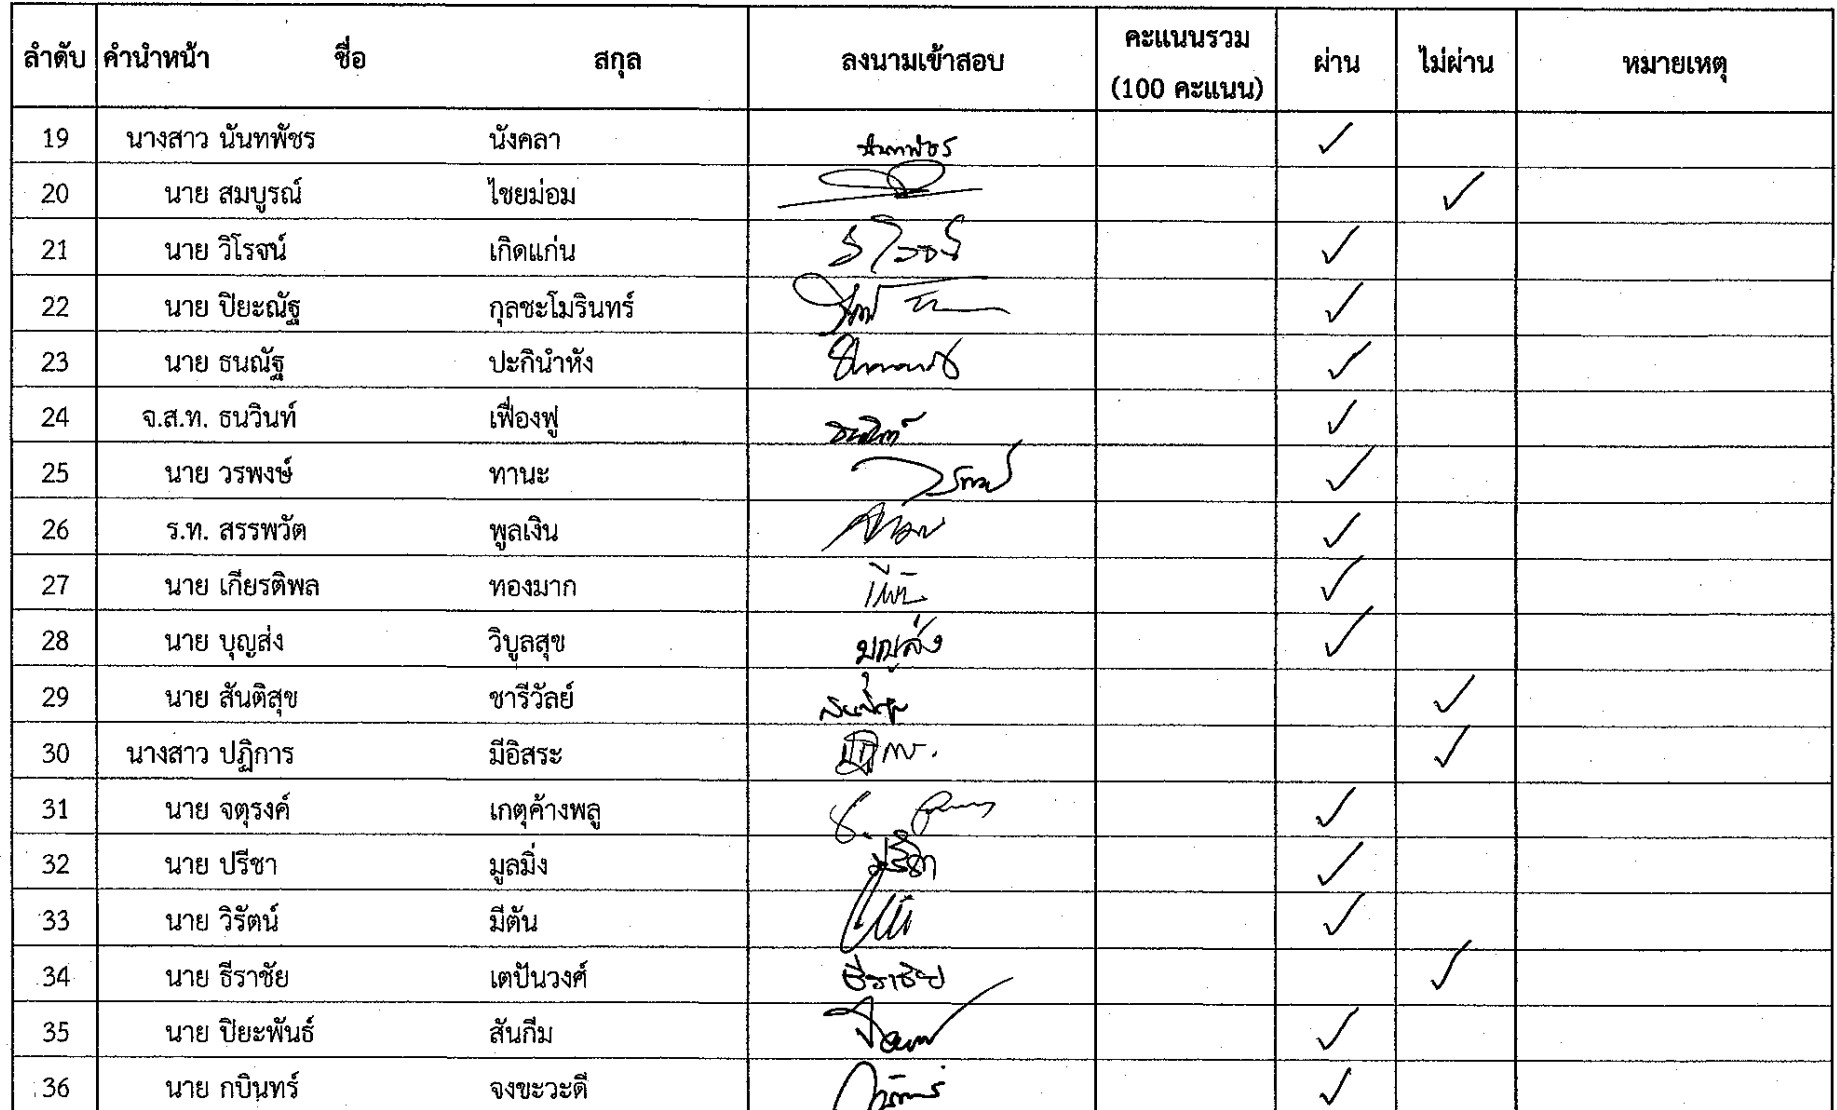 ลำดับ คำนำหน้า ชื่อ สกุล ลงนามเข้าสอบ คะแนนรวม (100 คะแนน) ผ่าน ไม่ผ่าน หมายเหตุ
19 นางสาว นันทพัชร นังคลา นันทพัชร ✓
20 นาย สมบูรณ์ ไชยม่อม ✓
21 นาย วิโรจน์ เกิดแก่น วิโรจน์ ✓
22 นาย ปิยะณัฐ กุลชะโมรินทร์ ✓
23 นาย ธนณัฐ ปะกินำหัง ✓
24 จ.ส.ท. ธนวินท์ เฟื่องฟู ธนวินท์ ✓
25 นาย วรพงษ์ ทานะ ✓
26 ร.ท. สรรพวัต พูลเงิน ✓
27 นาย เกียรติพล ทองมาก ✓
28 นาย บุญส่ง วิบูลสุข บุญส่ง ✓
29 นาย สันติสุข ชารีวัลย์ สันติสุข ✓
30 นางสาว ปฏิการ มีอิสระ ปฏิการ ✓
31 นาย จตุรงค์ เกตุค้างพลู ✓
32 นาย ปรีชา มูลมิ่ง ปรีชา ✓
33 นาย วิรัตน์ มีตัน ✓
34 นาย ธีราชัย เตปันวงศ์ ธีราชัย ✓
35 นาย ปิยะพันธ์ สันกีม ✓
36 นาย กบินทร์ จงขะวะดี ✓